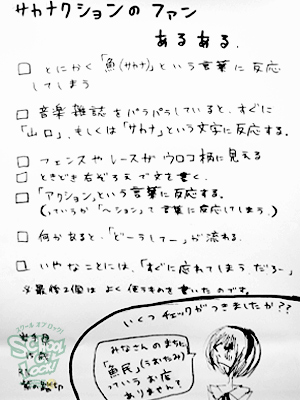 サカナクションの ファン
あるある.
□ とにかく「魚(サカナ)」という言葉に反応
してしまう
□ 音楽雑誌をパラパラしていると、すぐに
「山口」、もしくは「サカナ」という文字に反応する。
□ フェンスやレースがウロコ柄に見える
□ ときどき右ぞろえで文を書く.
□ 「アクション」という言葉に反応する。
(っていうか「〜ション」て言葉に反応してしまう.)
□ 何かあると、「どーうしてー」が流れる.
□ いやなことには、「すぐに忘れてしまうだろー」
※最後2個は よく使うものを書いたのです。
いくつチェックがつきましたか??
みなさんのまちに
「魚民」(うおたみ)
っていうお店
ありません?
スクール オブ ロック!
SCHOOL
OF
LOCK!